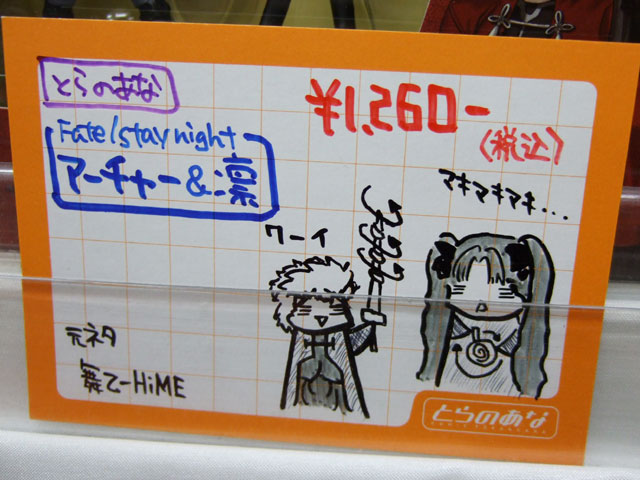 とらのあな
¥1,260-
(税込)
Fate/stay night
アーチャー&凛
マキマキマキ…
ワーイ
元ネタ
舞乙-HiME
とらのあな